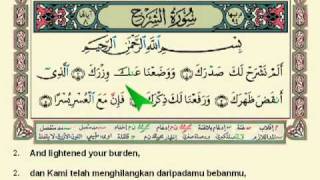 سُورَةُ الشَّرْحِ
بِسْمِ اللَّهِ الرَّحْمَٰنِ الرَّحِيمِ
أَلَمْ نَشْرَحْ لَكَ صَدْرَكَ وَوَضَعْنَا عَنكَ وِزْرَكَ الَّذِي
أَنقَضَ ظَهْرَكَ وَرَفَعْنَا لَكَ ذِكْرَكَ فَإِنَّ مَعَ الْعُسْرِ يُسْرًا
2. And lightened your burden,
2. dan Kami telah menghilangkan daripadamu bebanmu,